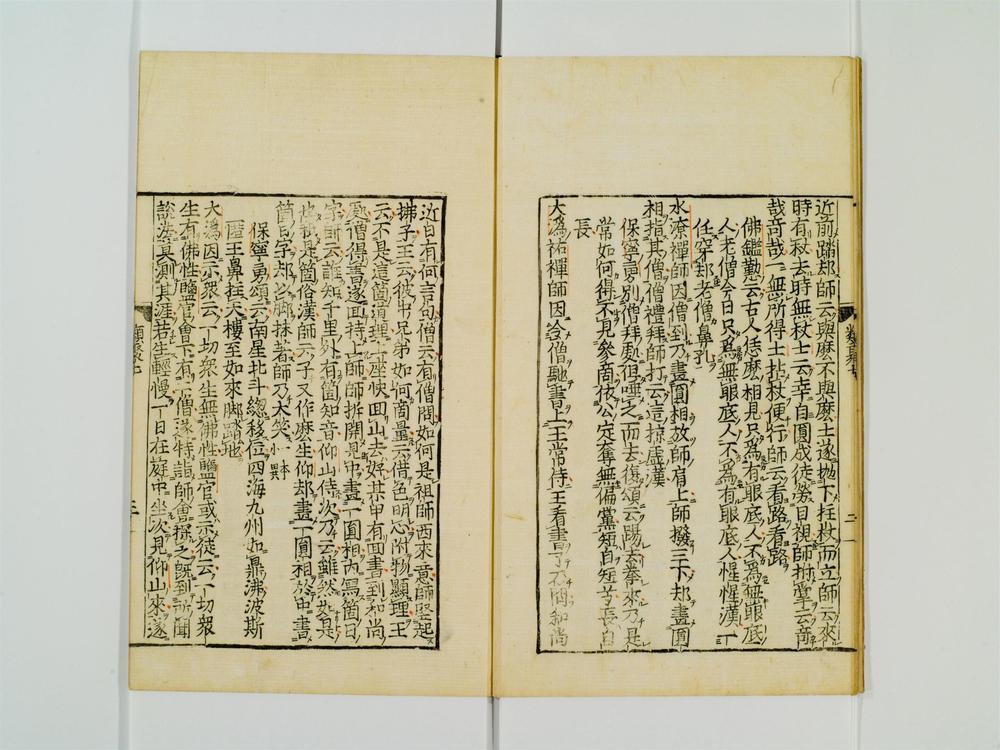 近前蹋却師云與麼不與麼士遂抛下拄杖而立師云來
時有杖去時無杖士云幸自圓成徒勞目視師拊掌云奇
哉奇哉一無所得士拈杖便行師云看路看路
佛鑑懃云古人恁麼相見只爲有眼底人不爲無眼底
人老僧今日只爲無眼底人不爲有眼底人惺惺漢一
任穿却老僧鼻孔
水潦禪師因僧到乃畫圓相放師肩上師撥三下却畫圓
相指其僧僧禮拜師打云這掠虛漢
保寧勇別僧拜處但唾之而去復頌云踢去拳來乃是
常如何得不見參商依公定奪無偏黨短自短兮長自
長
大溈祐禪師因僧馳書上王常侍王看書了問和尚
近日有何言句僧云有僧問如何是祖師西來意師竪起
拂子王云彼中兄弟如何商量云借色明心附物顯理王
云不是這箇道理上座快回山去好某甲有回書到和尚
處僧得書遂回持上師師拆開見中畫一圓相內寫箇日
字師云誰知千里外有箇知音仰山侍次乃云雖然如是
也只是箇俗漢師云子又作麼生仰却畫一圓相於中書
箇日字却以脚抹著師乃大笑 一本小異
保寧勇頌云南星北斗總移位四海九州如鼎沸波斯
匿王鼻拄天樓至如來脚踏地
大溈因示衆云一切衆生無佛性鹽官或示徒云一切衆
生有佛性鹽官會下有二僧遂特詣師會探之旣到所聞
說法莫測其涯若生輕慢一日在庭中坐次見仰山來遂